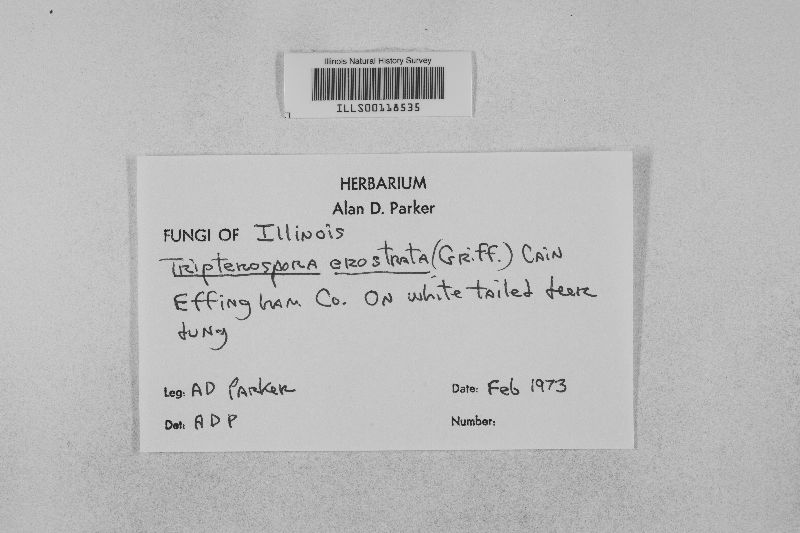 Illinois Natural History Survey
ILLS00118535
HERBARIUM
Alan D. Parker
FUNGI OF Illinois
Tripterospora erostrata (Griff.) Cain
Effingham Co. On white tailed deer
dung
Leg: AD Parker Date: Feb 1973
Det: ADP Number: